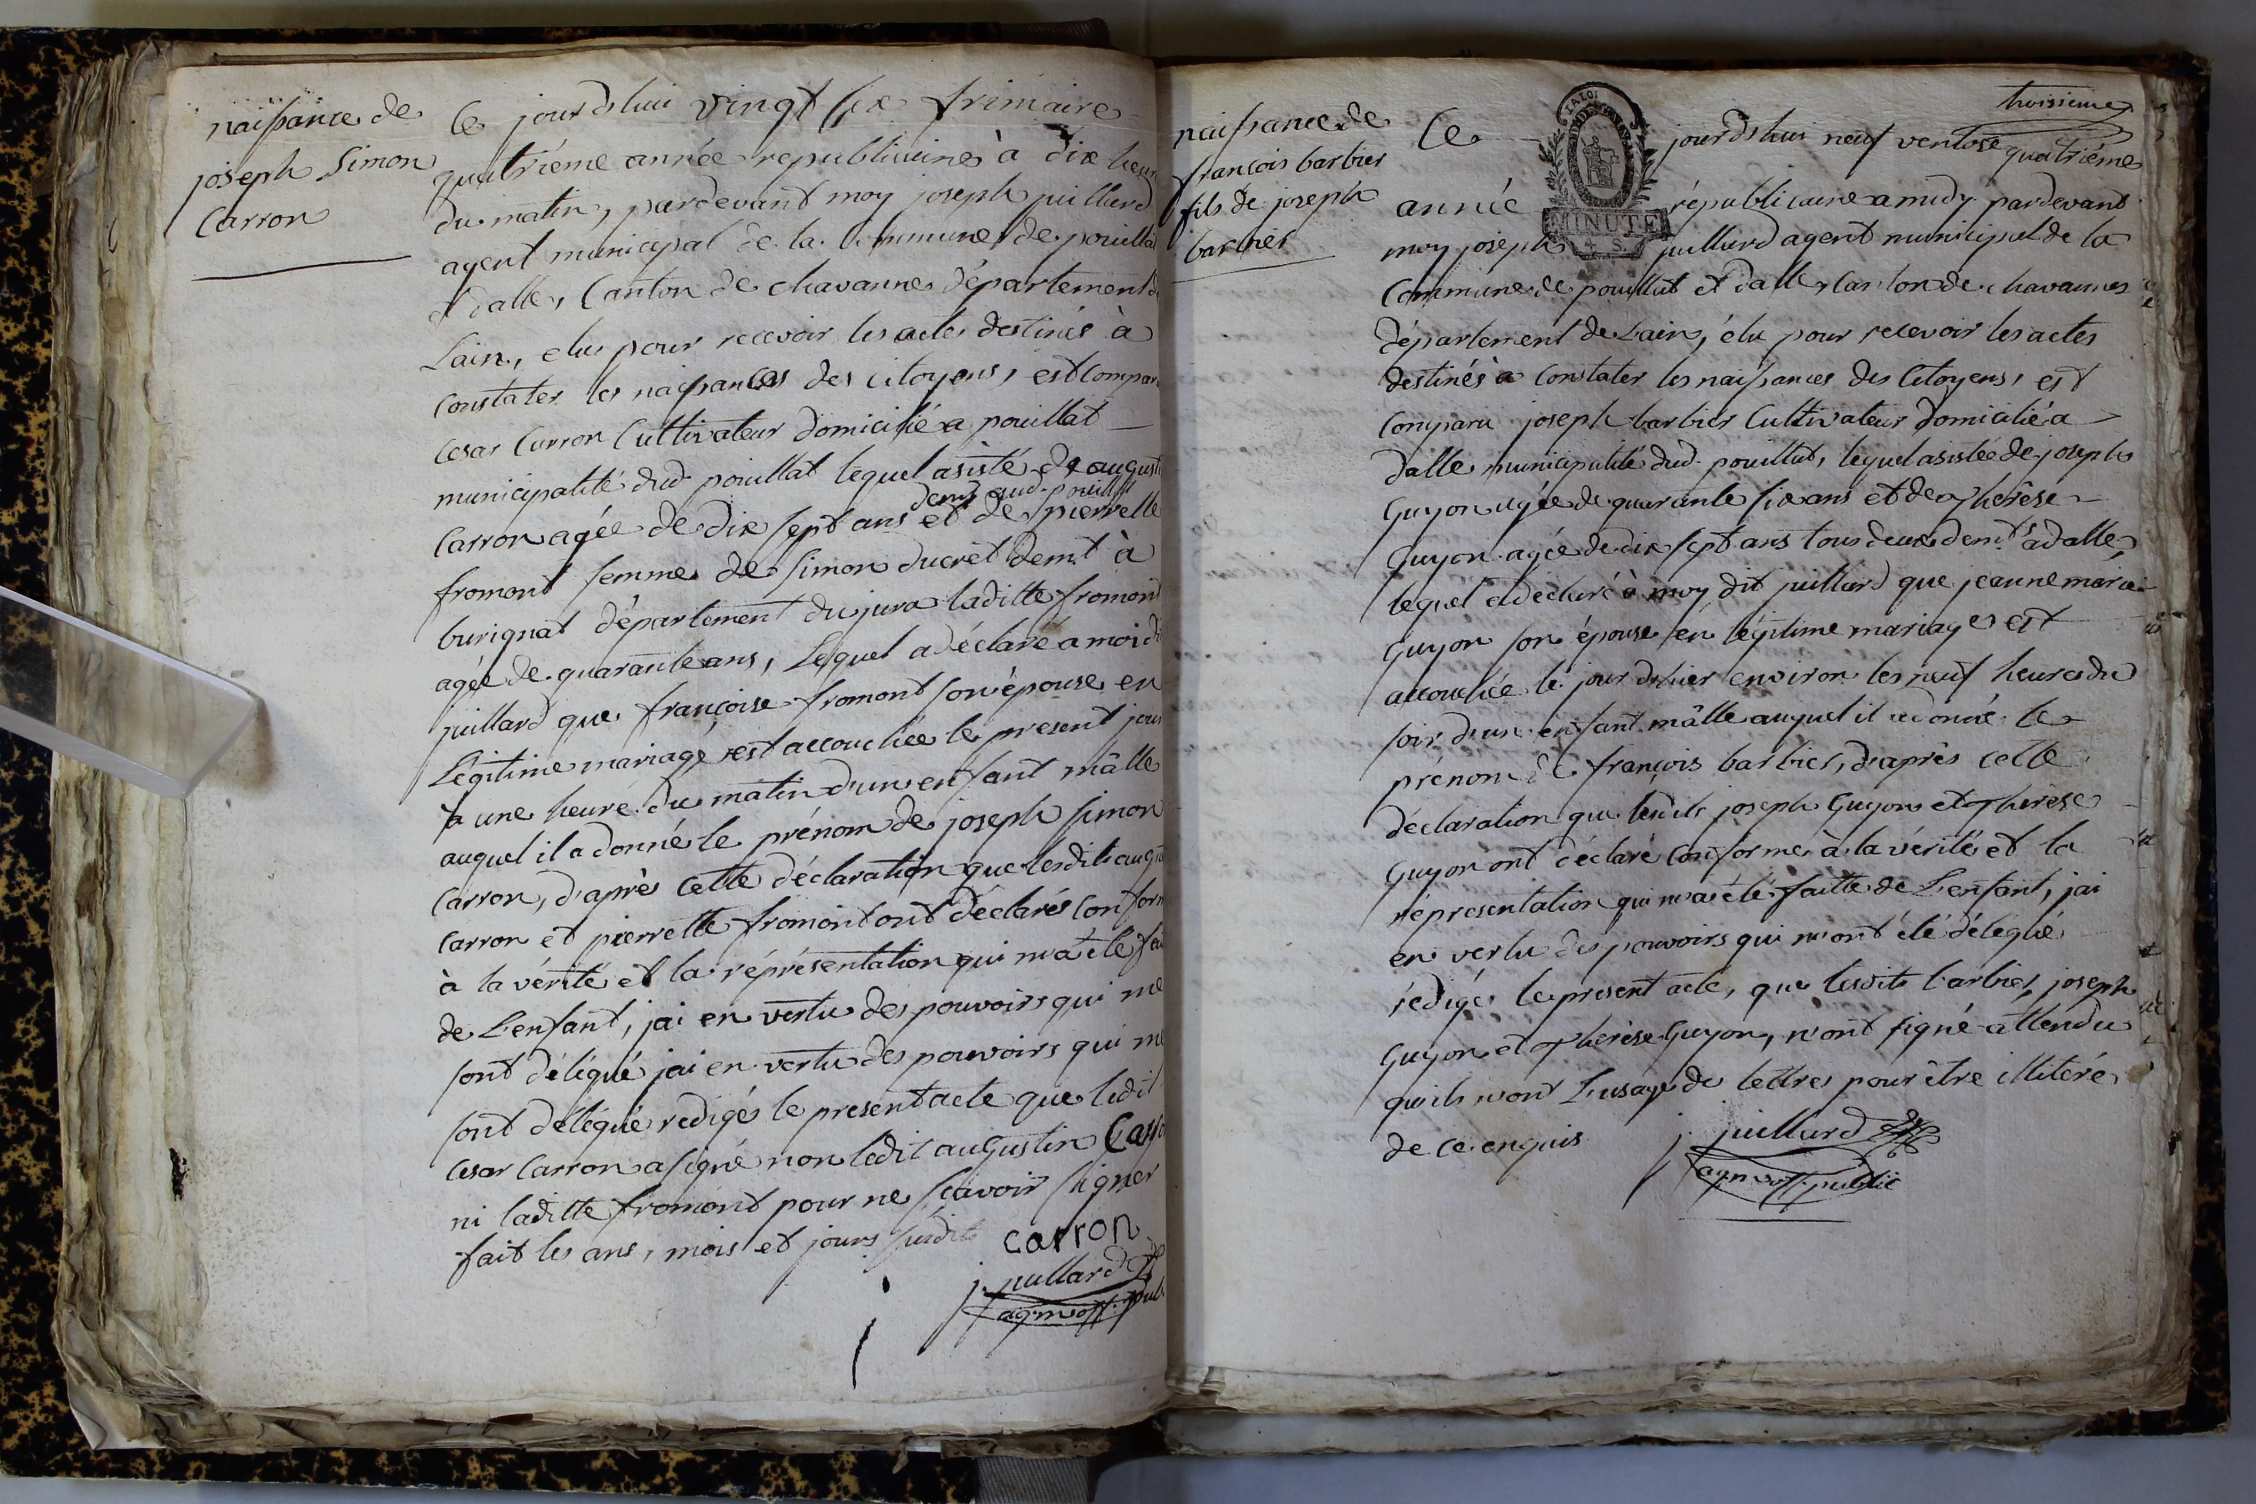 naissance de
joseph Simon
Carron
Ce jourdhui vingt six frimaire
quatriéme année republicaine à dix heur
du matin, pardevant moy joseph juillard
agent municipal de la Commune de pouillat
et dalle, Canton de chavanne département de
Lain, elu pour recevoir les actes destinés à
Constater les naissances des citoyens, est Compar
Cesar Carron Cultivateur domicilié a pouillat
municipalité dud. pouillat lequel asisté de august
demt aud. pouillat
Carron agée de dix sept ans et de pierrette
fromont femme de Simon ducret demt. à
burignat département du jura laditte fromont
agée de quarante ans, Lequel a déclaré a moi dit
juillard que françoise fromont son épouse en
Légitime mariage, est accouchée le present jour
à une heure du matin d'un enfant mâlle
auquel il a donné le prénom de joseph Simon
Carron, d'après Cette déclaration que lesdits augus
Carron et pierrette fromont ont déclarés Conform
à la vérité et la réprésentation qui m'a été fai
de L'enfant, jai en vertu des pouvoirs qui me
sont délégué jai en vertu des pouvoirs qui me
sont délégué redigés le present acte que ledit
Cesar Carron a signé non ledit auGustin Carro
ni laditte fromont pour ne scavoir signer
fait les ans, mois et jours susdits carron
j. juillard
ag. m. off. pub.
troisieme
naissance de
francois barbier
fils de joseph
barbier
LA LOI
MINUTE
4 S.
Ce jourdhui neuf ventose quatriéme
année républicaine a midy pardevant
moy joseph juillard agent municipal de la
Commune de pouillat et dalle, Canton de chavannes
département de Lain, élu pour recevoir les actes
destinés à Constater les naissances des Citoyens, est
Comparu joseph barbier Cultivateur domicilié a
dalle municipalité dud. pouillat, lequel asistée de joseph
Guyon agée de quarante six ans et de therèse
Guyon agée de dix sept ans tous deux demt. a dalle,
lequel a déclaré à moy dit juillard que jeanne marie
Guyon son épouse en légitime mariage est
accouchée le jour d'hier environ les neuf heures du
soir d'un enfant mâlle auquel il a donné le
prénom de françois barbier, d'après cette
déclaration que lesdits joseph Guyon et therèse
Guyon ont déclaré Conforme à la vérité et la
réprésentation qui m'a été faitte de L'enfant, jai
en vertu des pouvoirs qui m'ont été délégué
rédigés le present acte, que lesdits barbier, joseph
Guyon et therèse Guyon, n'ont signé attendu
quils n'ont L'usage de lettres pour être illitéré
de ce enquis j. juillard
ag. m. off. public